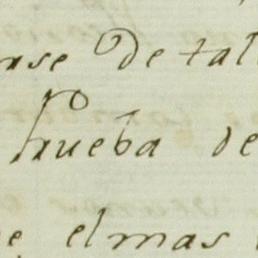 rse de tal
Prueba de
elmas